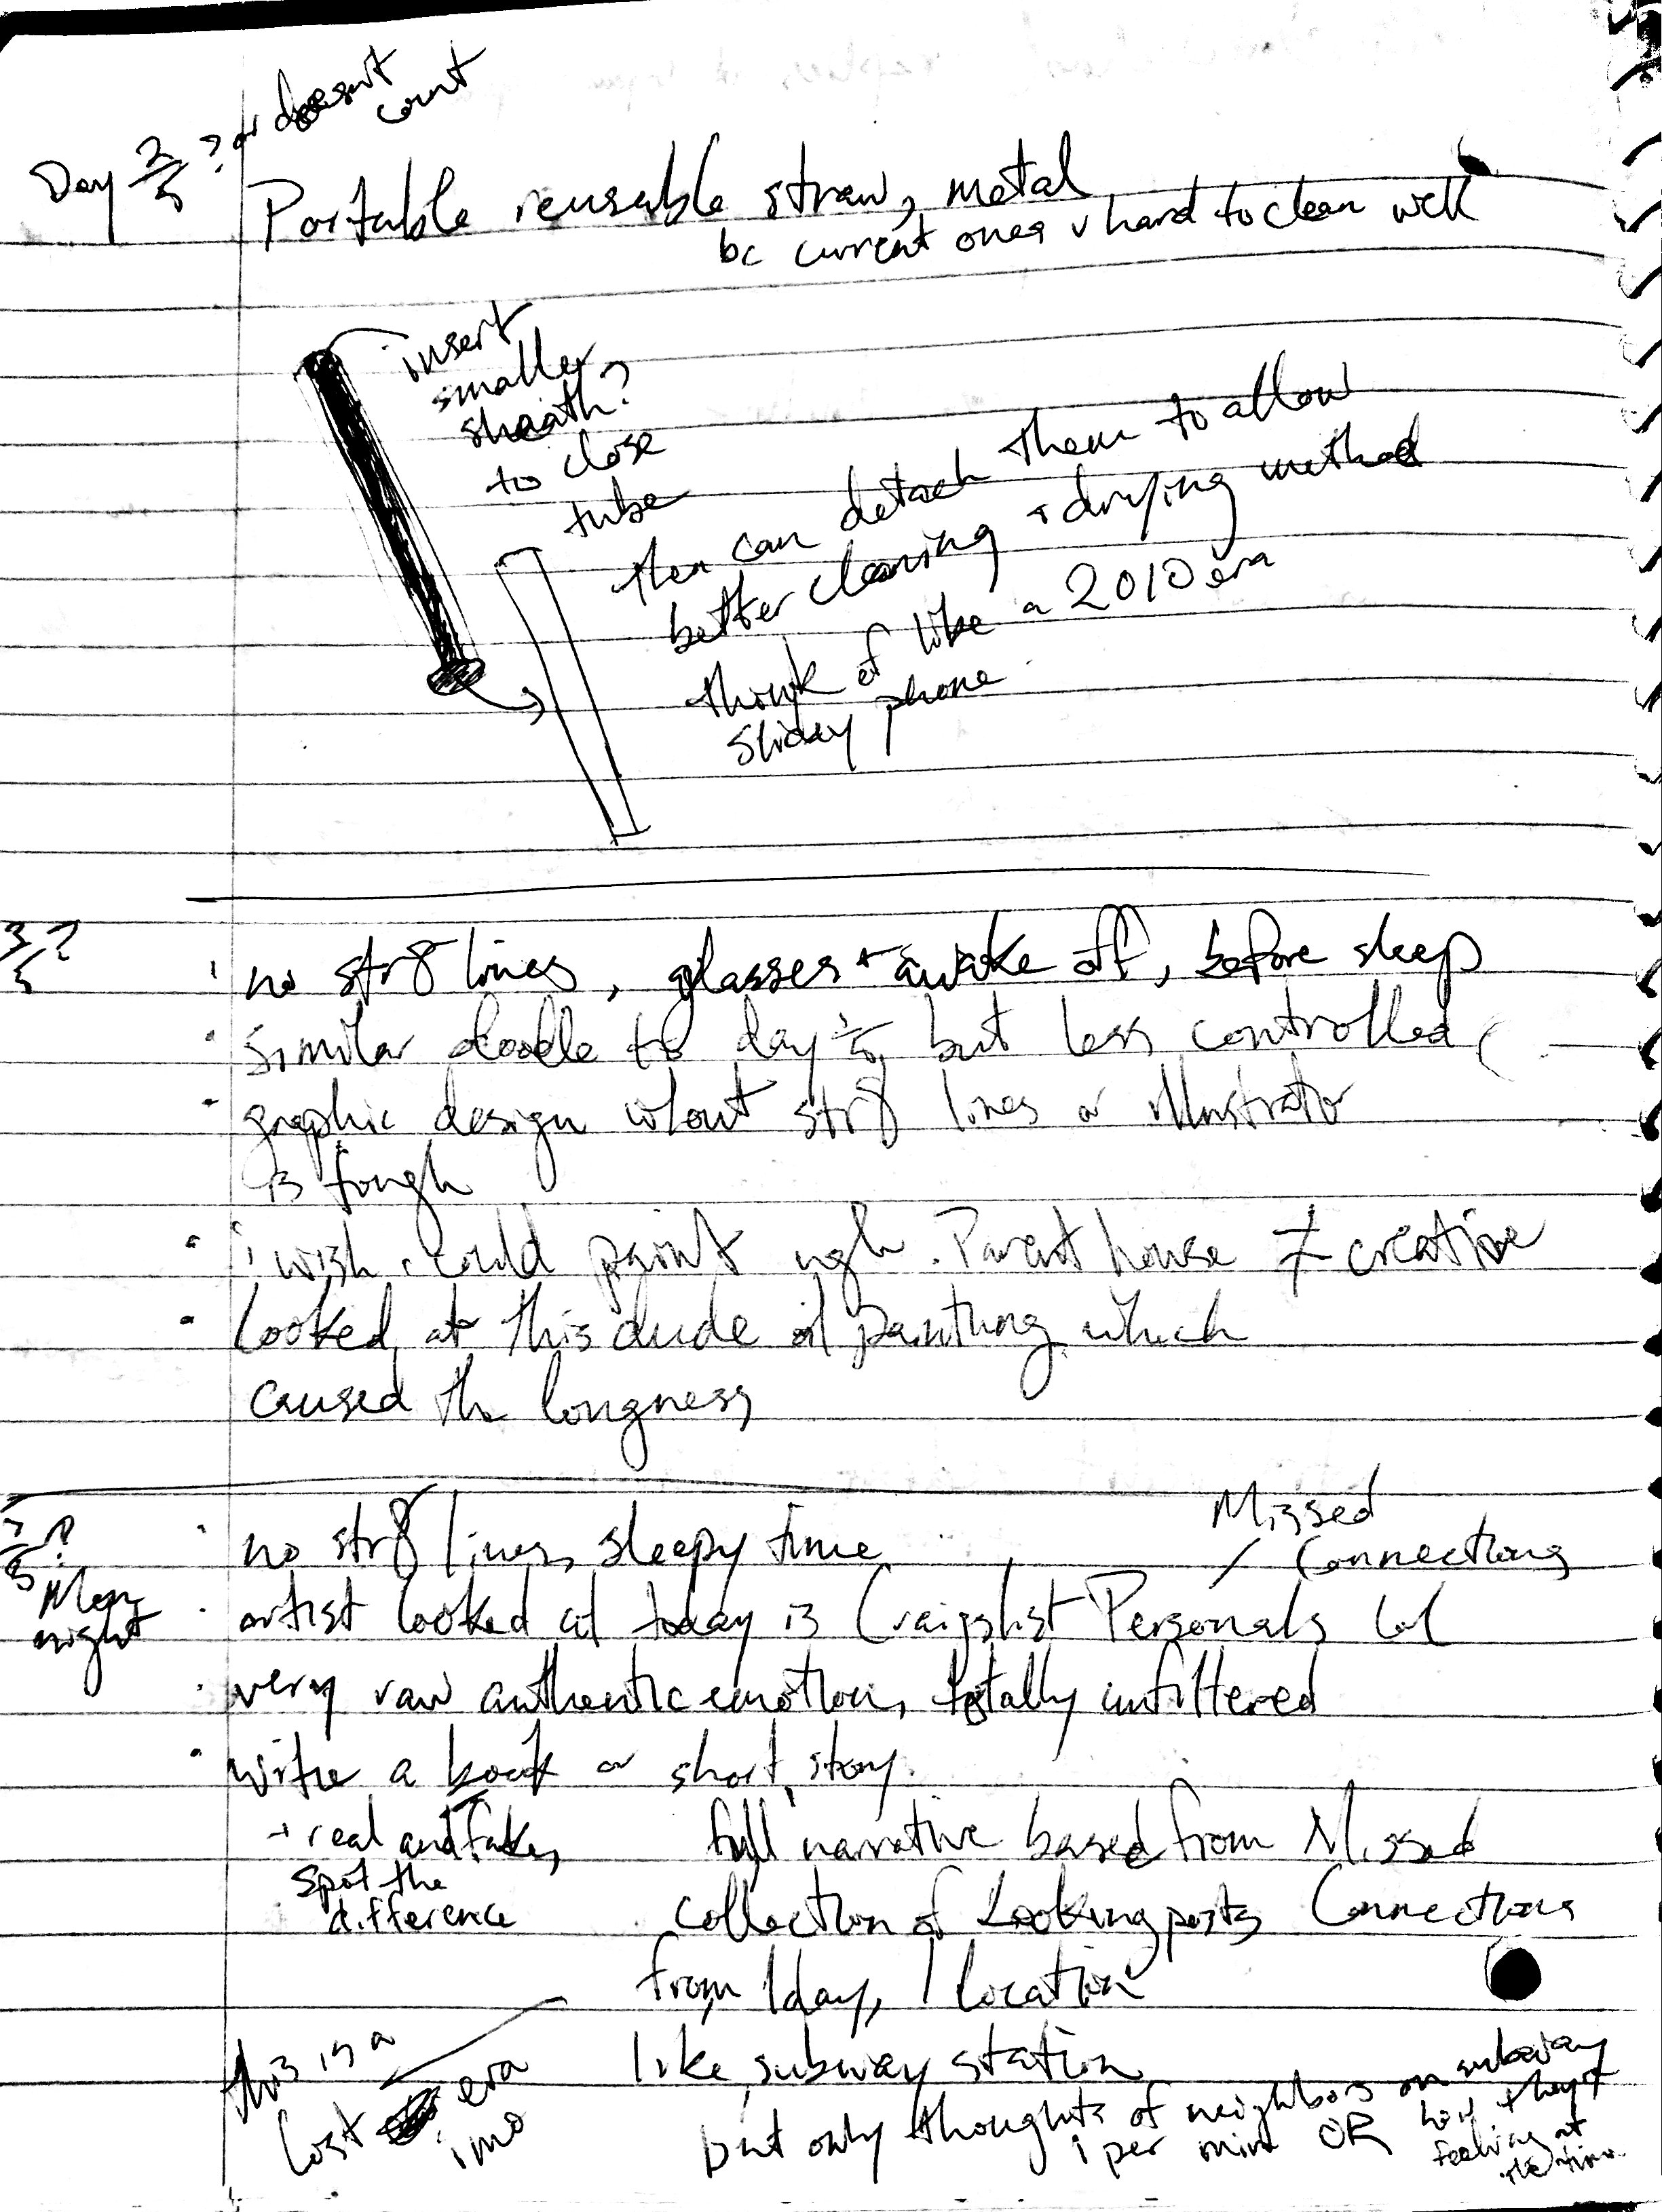 Day 2/5 ? or doesn't
count
Portable reusable straw, metal
bc current ones v hard to clean well
insert
smaller
sheath?
to close
tube
then can detach them to allow
better cleaning + drying method
think of like a 2010 era
sliday phone
3/5 ?
no str8 lines, glasses + awake off, before sleep
similar doodle to day but less controlled
graphic design w/out str8 lines or illustrator
is tough
i wish i could paint ugh. Parent house ≠ creative
looked at this dude oil painting which
caused the longness
/5 ?
Mon
night
no str8 lines, sleepy time
Missed
Connections
artist looked at today is Craigslist Personals lol
very raw authentic emotion, totally unfiltered
write a book or short story.
→ real and fake,
spot the
difference
full narrative based from Missed
collection of Looking posts Connections
from 1 day, 1 location
like subway station
but only thoughts of neighbors on subway
1 per min OR how they
feeling at
the time
this is a
lost era
imo